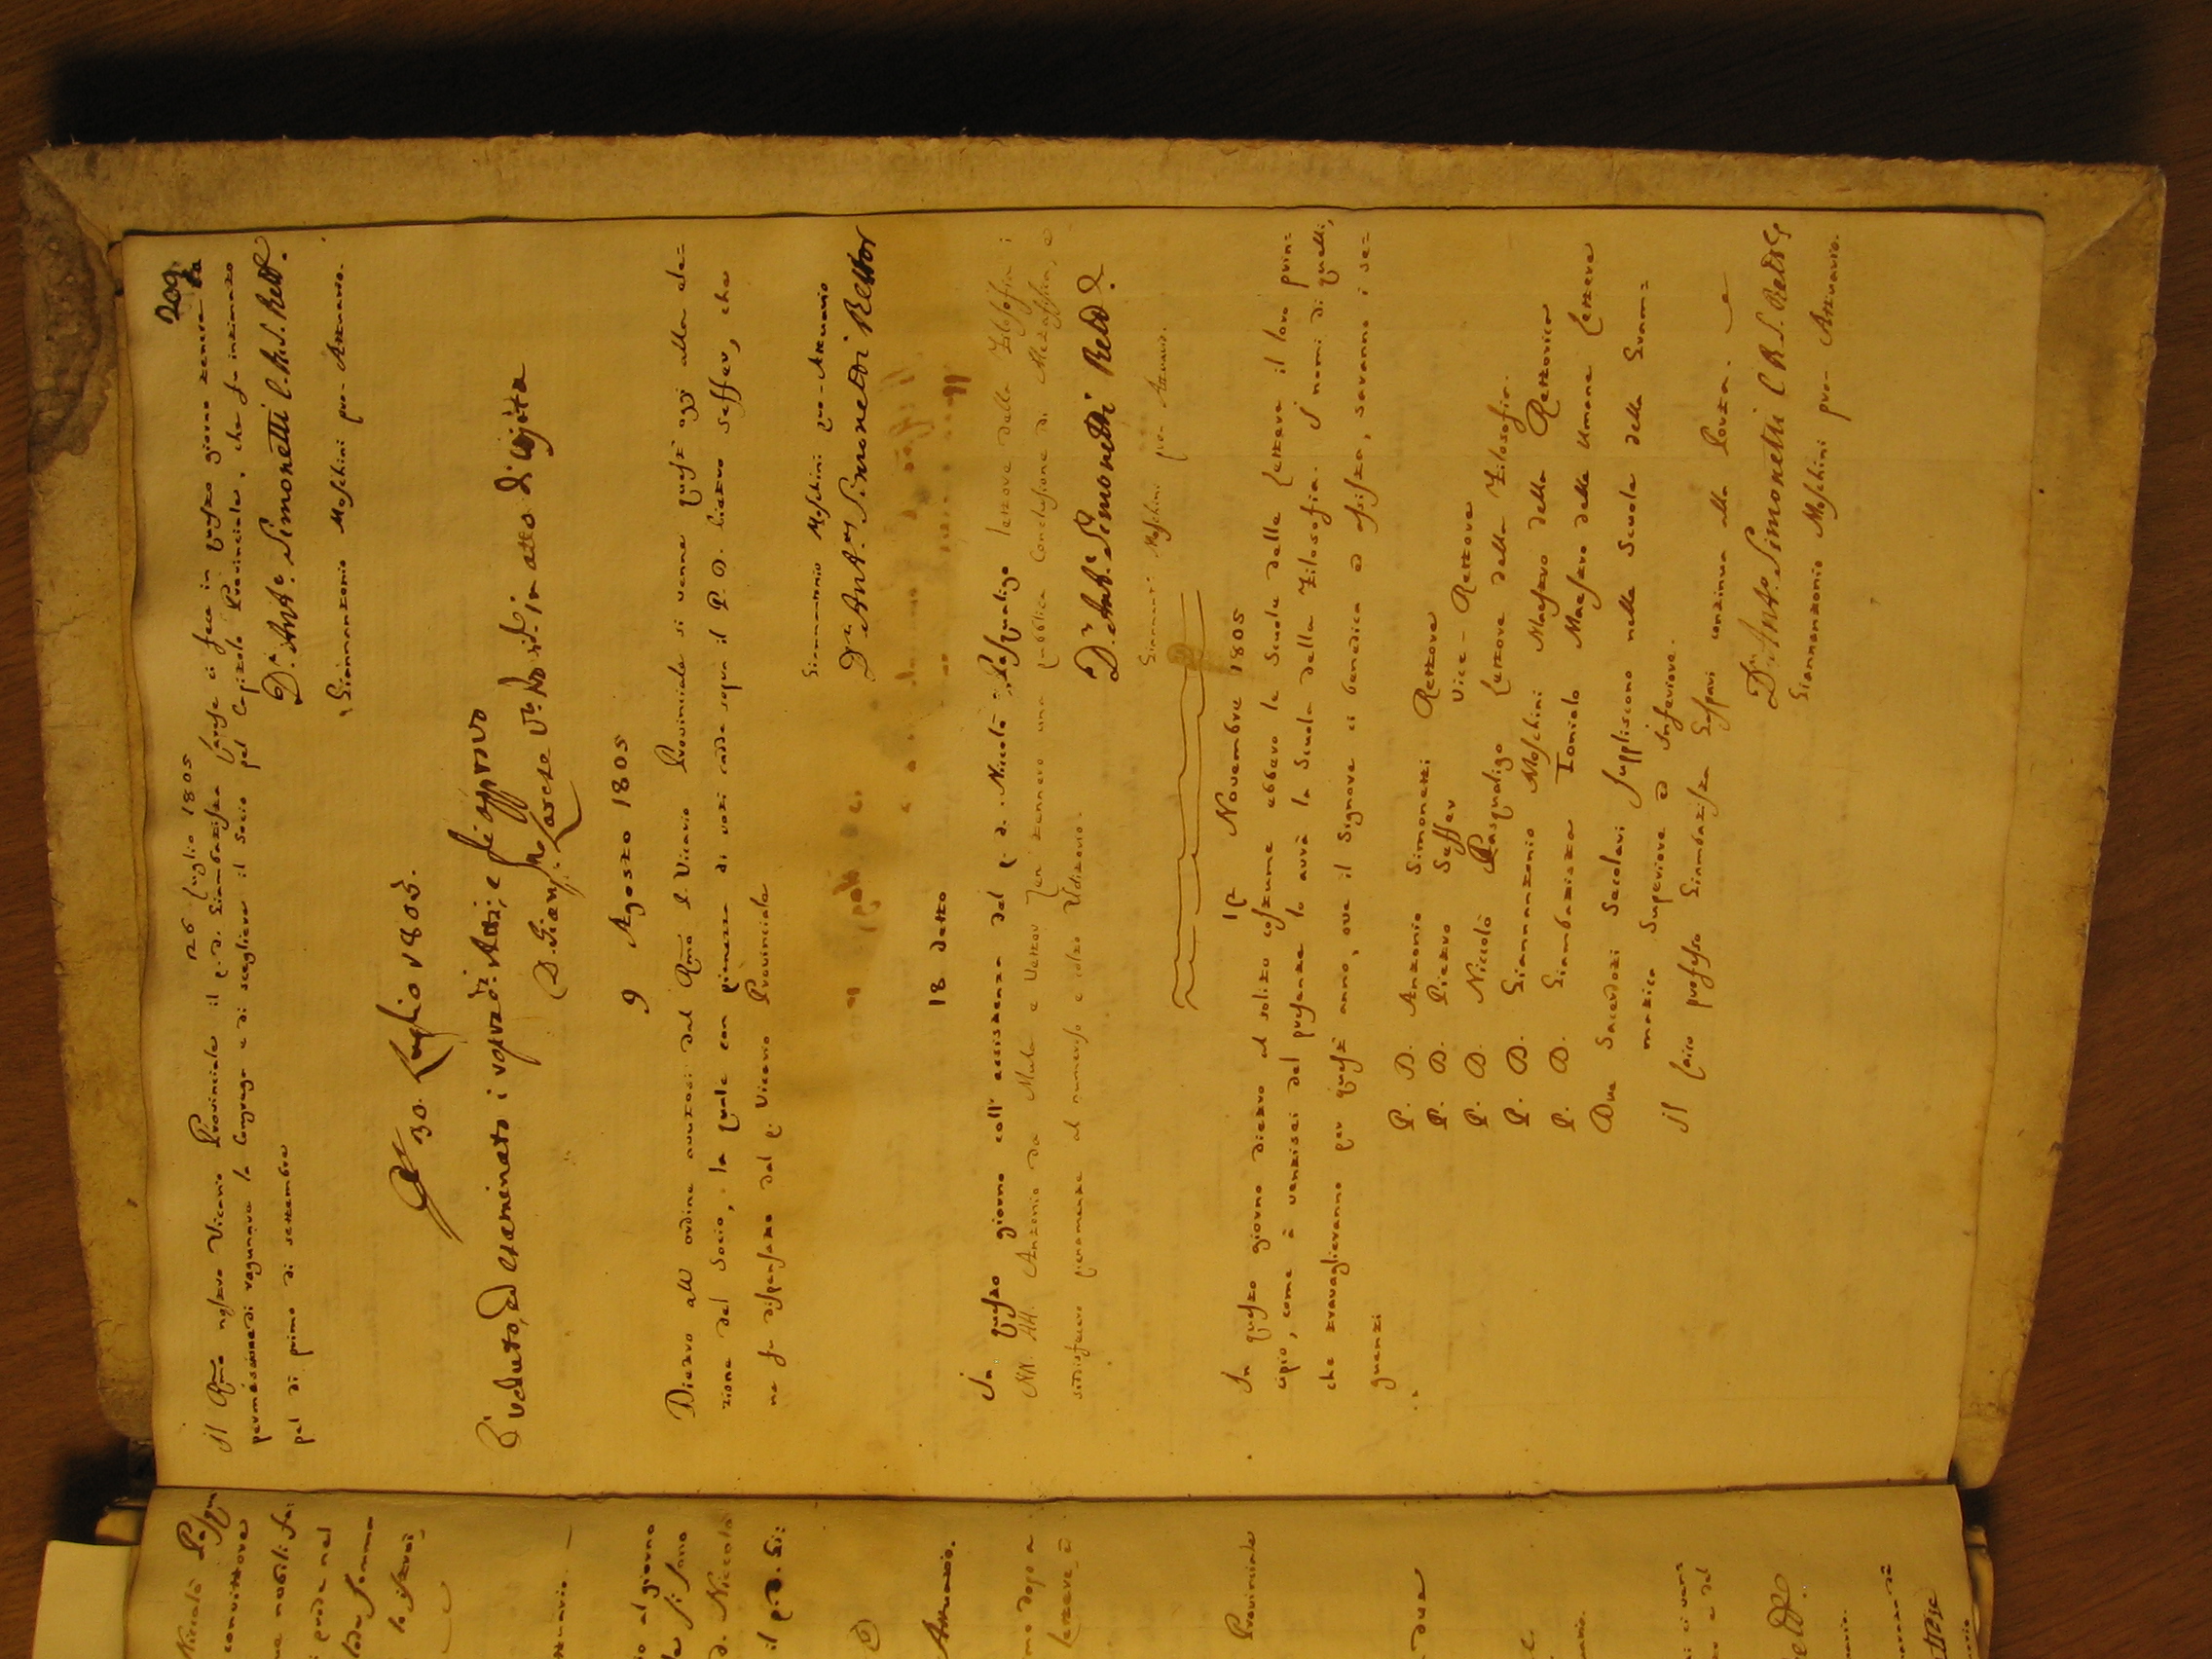 209
26 Luglio 1805
Il Rmo nostro Vicario Provinciale il p. d. Giambatista Larese ci fece in questo giorno tenere la
permissione di ragunare la Congrega e di scegliere il Socio pel Capitolo Provinciale, che fu intimato
pel dì primo di settembre
Dn. Ant.o Simonetti C.R.S. Rett.
Giannantonio Moschini pro-Attuario.
30. Luglio 1805.
Veduto, ed esaminato i sopradi Atti, e si approvo
D. Gian. Larese Vic. Pro. in atto di visita
9 Agosto 1805
Dietro all'ordine avutosi dal Rmo P. Vicario Provinciale si venne quest'oggi alla ele=
zione del Socio, la quale con pienezza di voti cadde sopra il P. D. Pietro Seffer, che
ne fu dispensato dal p. Vicario Provinciale
Giannantonio Moschini pro-Attuario
Dn. Ant.o Simonetti Rettor
18 detto
In questo giorno coll'assistenza del p. d. Niccolò Pasqualigo lettore della Filosofia i
NN. HH. Antonio da Mula e Vettor tennero una pubblica Conclusione di Metafisica, e
soddisfecero pienamente al numeroso e colto Uditorio.
Dn. Ant.o Simonetti Rett.
Giannant. Moschini pro-Attuario.
12 Novembre 1805
In questo giorno dietro al solito costume ebbero le Scuole delle Lettere il loro prin=
cipio, come à ventisei del presente lo avrà la Scuola della Filosofia. I nomi di quelli,
che travaglieranno per quest'anno, ove il Signore ci benedica ed assista, saranno i se=
guenti
P. D. Antonio Simonetti Rettore
P. D. Pietro Seffer Vice-Rettore
P. D. Niccolò Pasqualigo Lettore della Filosofia.
P. D. Giannantonio Moschini Maestro della Rettorica
P. D. Giambatista Toniolo Maestro delle Umane Lettere
Due Sacerdoti Secolari suppliscono nelle Scuole della Gram=
matica Superiore ed Inferiore.
Il laico professo Giambatista Gaspari continua alla Porta.
Dn. Ant.o Simonetti C.R.S. Rett.
Giannantonio Moschini pro-Attuario.
Niccolò Pasqua
convittore
nobili fa:
prode nel
al giorno
d. Niccolò
il p. d. Gi:
Attuario.
dopo a
Lettere, e
Provinciale
due